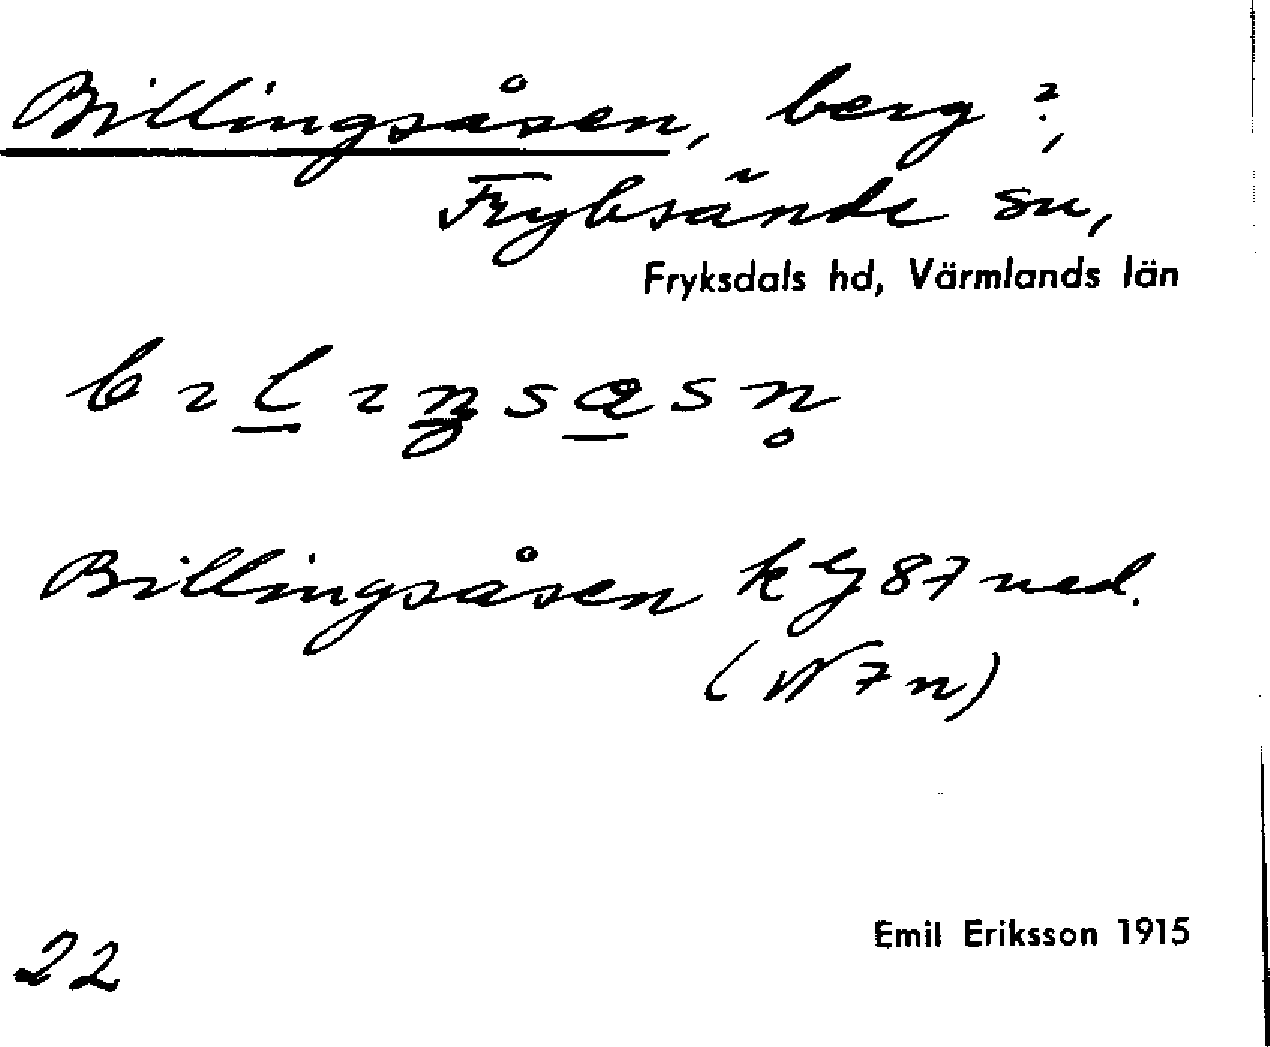 Billingsåsen, berg?,
Fryksände sn,
Fryksdals hd, Värmlands län
Billingsåsen kG 87 ned.
(W 7 n)
Emil Eriksson 1915
22